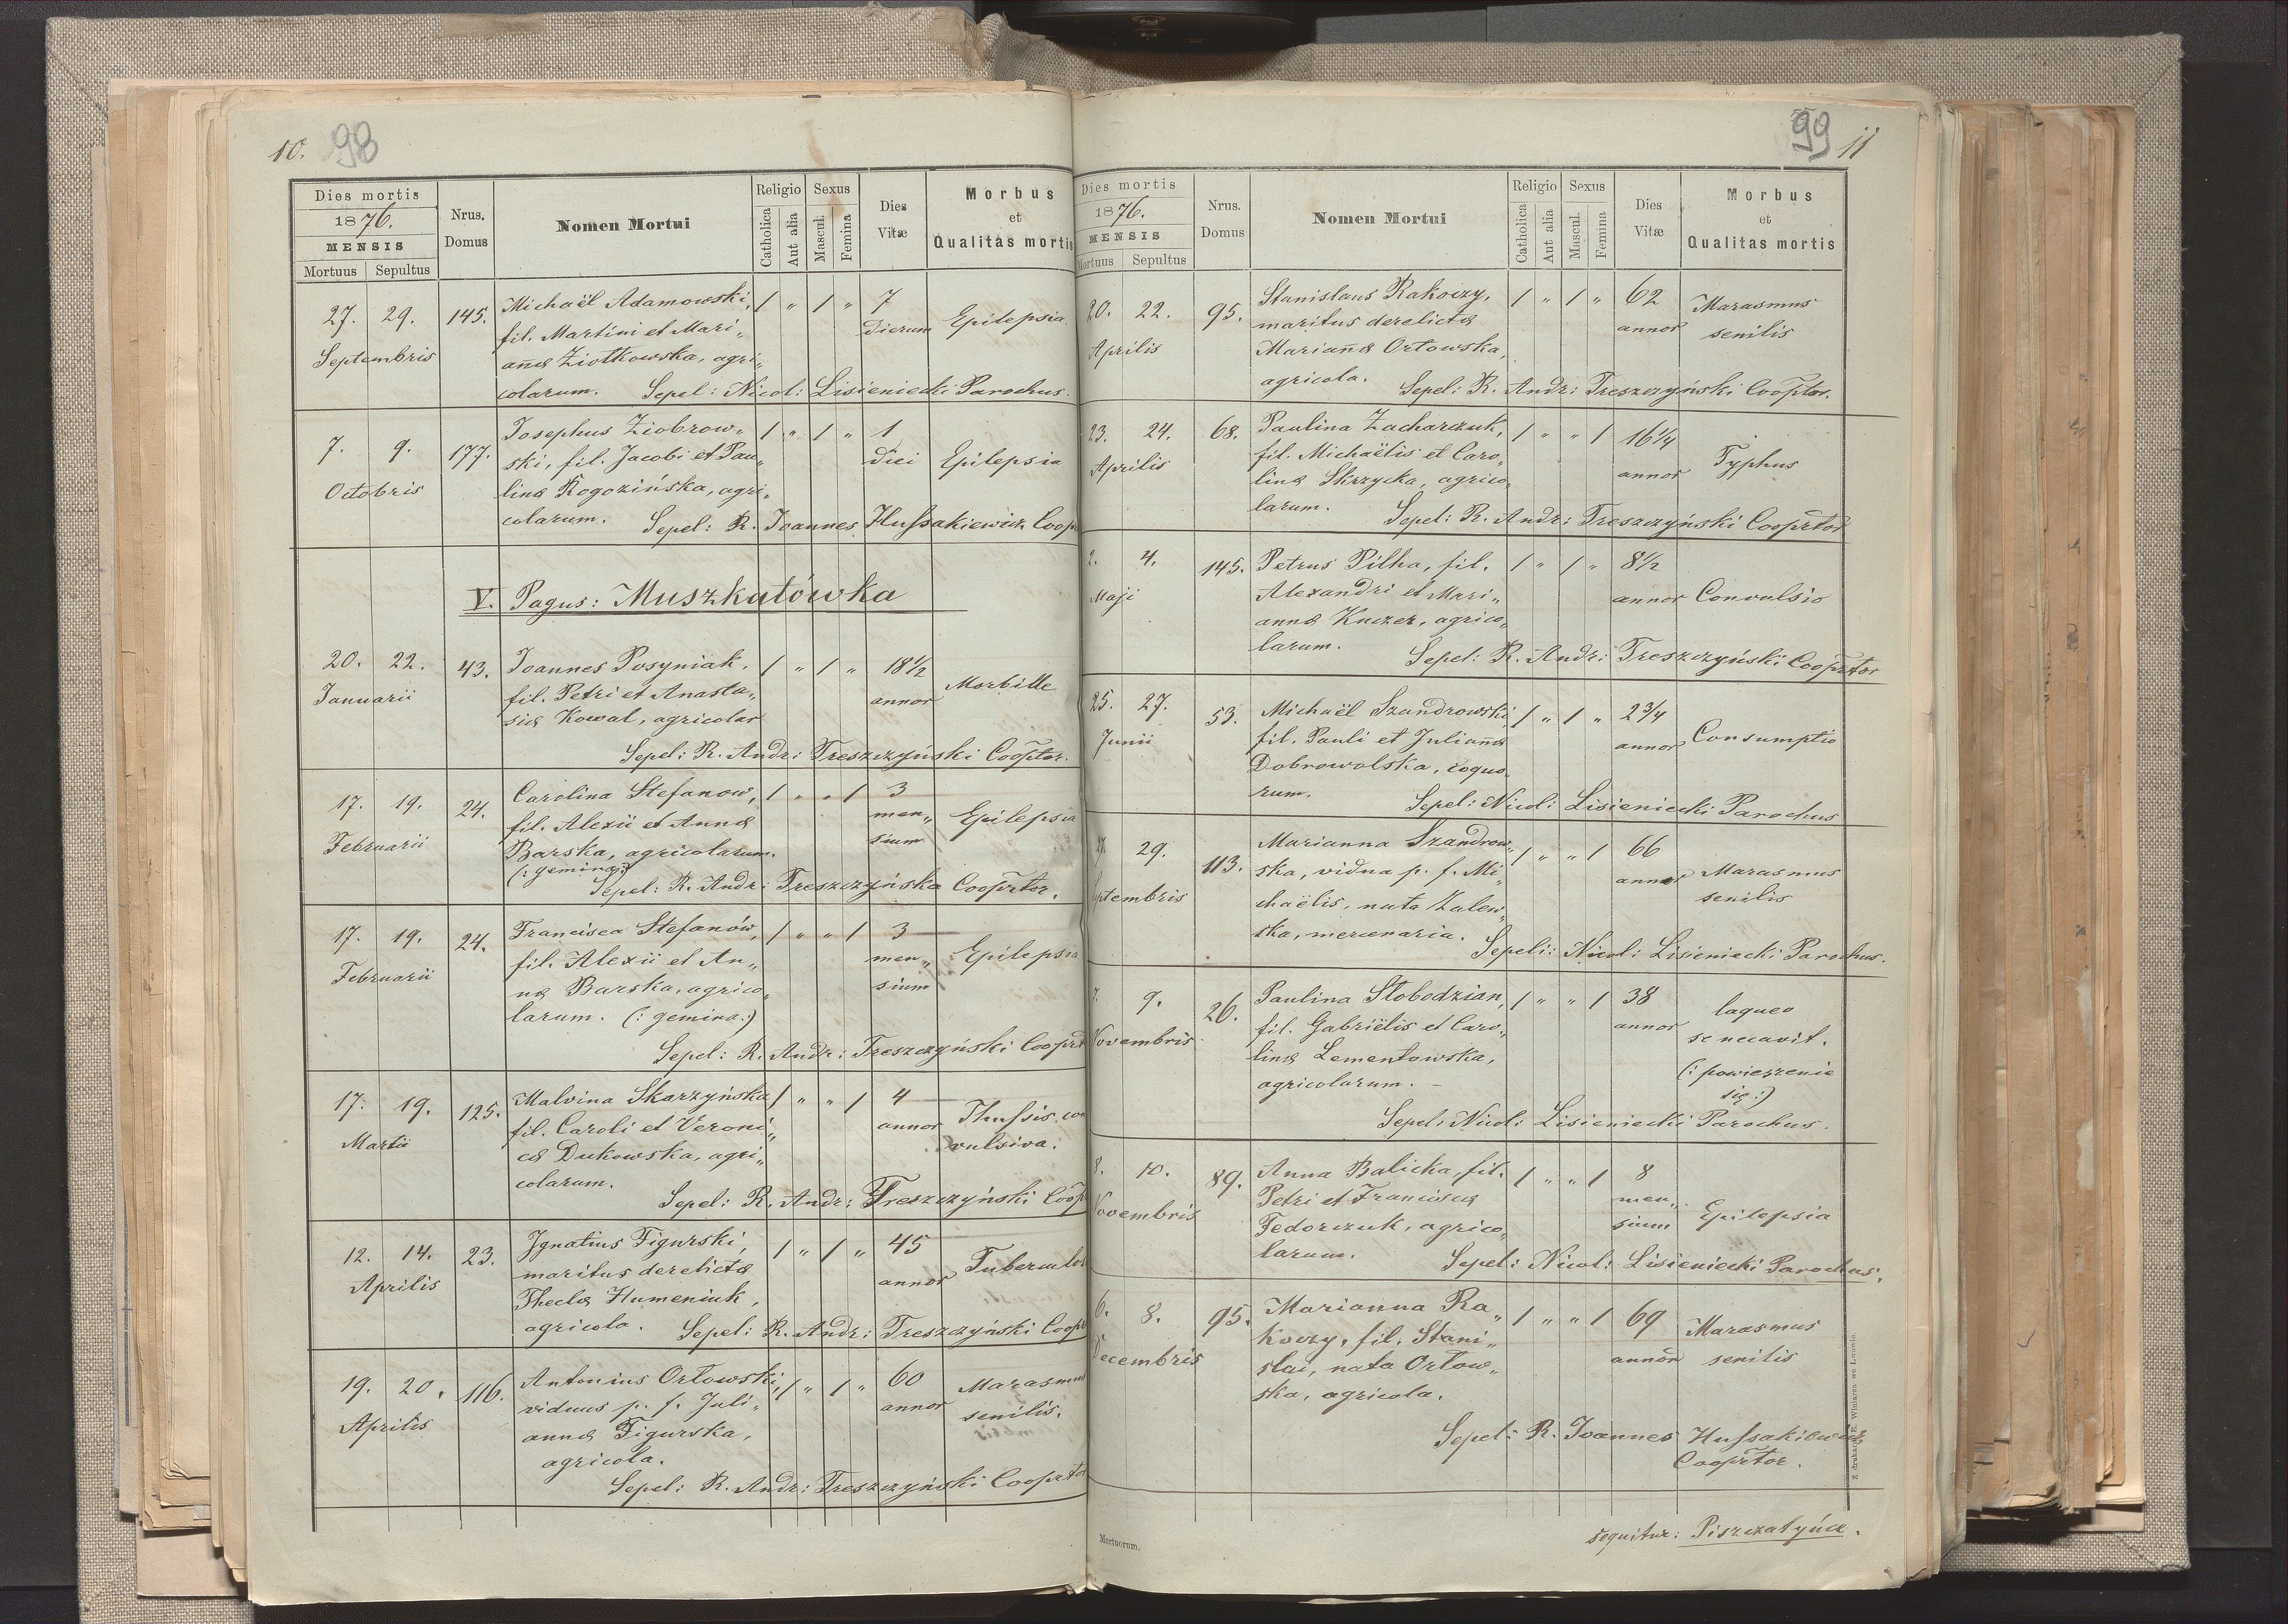 10. 98
Dies mortis
1876.
MENSIS
Mortuus Sepultus
Nrus.
Domus
Nomen Mortui
Religio
Catholica
Aut alia
Sexus
Mascul.
Femina
Dies
Vitæ
Morbus
et
Qualitas mortis
27. 29. 145. Michaël Adamowski, 1 „ 1 „ 7
Septembris fil. Martini et Mari„ dierum Epilepsia.
annæ Ziołkowska, agri„
colarum. Sepel: Nicol: Lisieniecki Parochus.
7. 9. 177. Josephus Ziobrow„ 1 „ 1 „ 1
Octobris ski, fil. Jacobi et Pau„ diei Epilepsia
linæ Rogozińska, agri„
colarum. Sepel: R. Joannes Hussakiewicz Coop
V. Pagus: Muszkatówka
20. 22. 43. Joannes Posyniak, 1 „ 1 „ 18½
Januarii fil. Petri et Anasta„ annor Morbille
siæ Kowal, agricolar
Sepel: R. Andr: Treszczyński Cooptor.
17. 19. 24. Carolina Stefanow, 1 „ „ 1 3
Februarii fil. Alexii et Annæ men„ Epilepsia
Barska, agricolarum. sium
(: gemina:)
Sepel: R. Andr: Treszczyńska Cooprtor.
17. 19. 24. Francisca Stefanów, 1 „ „ 1 3
Februarii fil. Alexii et An„ men„ Epilepsia
næ Barska, agrico„ sium
larum. (: gemina:)
Sepel: R. Andr: Treszczyński Cooprt
17. 19. 125. Malvina Skarzyńska 1 „ „ 1 4
Martii fil. Caroli et Veroni„ annor Thussis con
cæ Dukowska, agri„ vulsiva.
colarum.
Sepel: R. Andr: Treszczyński Coop
12. 14. 23. Jgnatius Figurski, 1 „ 1 „ 45
Aprilis maritus derelictæ annor Tuberculos
Theclæ Humeniuk,
agricola. Sepel: R. Andr: Treszczyński Coopr
19. 20. 116. Antonius Orłowski, 1 „ 1 „ 60
Aprilis viduus p. f. Juli„ annor Marasmus
annæ Figurska, senilis.
agricola.
Sepel: R. Andr: Treszczyński Cooprtor
99 11
Dies mortis
1876.
MENSIS
Mortuus Sepultus
Nrus.
Domus
Nomen Mortui
Religio
Catholica
Aut alia
Sexus
Mascul.
Femina
Dies
Vitæ
Morbus
et
Qualitas mortis
20. 22. 95. Stanislaus Rakoczy, 1 „ 1 „ 62
Aprilis maritus derelictæ annor Marasmus
Mariannæ Orłowska, senilis
agricola. Sepel: R. Andr: Treszczyński Cooptor.
23. 24. 68. Paulina Zacharczuk, 1 „ „ 1 16¼
Aprilis fil. Michaëlis et Caro„ annor Typhus
linæ Skrzycka, agrico„
larum. Sepel: R. Andr: Treszczyński Cooprtor
2. 4. 145. Petrus Pilha, fil. 1 „ 1 „ 8½
Maji Alexandri et Mari„ annor Convulsio
annæ Kuczer, agrico„
larum. Sepel: R. Andr: Treszczyński Cooprtor
25. 27. 53. Michaël Szandrowski, 1 „ 1 „ 2¾
Junii fil. Pauli et Juliannæ annor Consumptio
Dobrowolska, coquo„
rum. Sepel: Nicol: Lisieniecki Parochus
27. 29. 113. Marianna Szandrow„ 1 „ „ 1 66
ptembris ska, vidua p. f. Mi„ annor Marasmus
chaëlis, nata Zalew„ senilis
ska, mercenaria. Sepeli: Nicol: Lisieniecki Parochus.
7. 9. 26. Paulina Słobodzian, 1 „ „ 1 38
Novembris fil. Gabriëlis et Caro„ annor laqueo
linæ Lementowska, se necavit.
agricolarum. (: powieszenie
się:)
Sepel: Nicol: Lisieniecki Parochus.
8. 10. 89. Anna Balicka, fil. 1 „ „ 1 8
Novembris Petri et Franciscæ men„
Fedorczuk, agrico„ sium Epilepsia
larum. Sepel: Nicol: Lisieniecki Parochus.
6. 8. 95. Marianna Ra„ 1 „ „ 1 69
Decembris koczy, fil. Stani„ annor Marasmus
slai, nata Orłow„ senilis
ska, agricola.
Sepel: R. Joannes Hussakiewicz
Cooprtor.
Mortuorum.
Z drukarni E. Winiarza we Lwowie.
sequitur: Piszczatyńce.